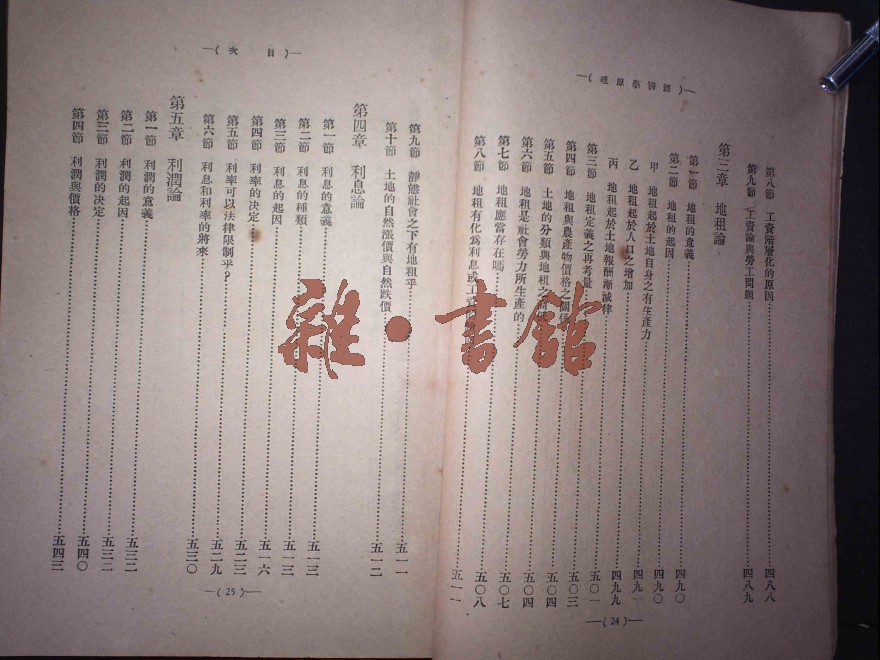 —(經濟學原理)—
第八節 工資階層化的原因……四八八
第九節 工資論與勞工問題……四八九
第三章 地租論
第一節 地租的意義……四九〇
第二節 地租的起因……四九〇
甲 地租起於土地自身之有生產力……四九〇
乙 地租起於人口之增加……四九一
丙 地租起於土地報酬漸減律……四九九
第三節 地租定義之再考量……五〇一
第四節 地租與農產物價格之關係……五〇三
第五節 土地的分類與地租之……五〇四
第六節 地租是社會勞力所生產的……五〇四
第七節 地租應當存在嗎……五〇七
第八節 地租有化爲利息或工……五〇八
五一一
—(24)—
—(目次)—
第九節 靜態社會之下有地租乎……五一一
第十節 土地的自然漲價與自然跌價……五一二
第四章 利息論
第一節 利息的意義……五一三
第二節 利息的種類……五一三
第三節 利息的起因……五一三
第四節 利率的决定……五一六
第五節 利率可以法律限制乎?……五二三
第六節 利息和利率的將來……五二九
第五章 利潤論……五三〇
第一節 利潤的意義……五三二
第二節 利潤的起因……五三二
第三節 利潤的决定……五四〇
第四節 利潤與價格……五四三
—(25)—
雜·書館